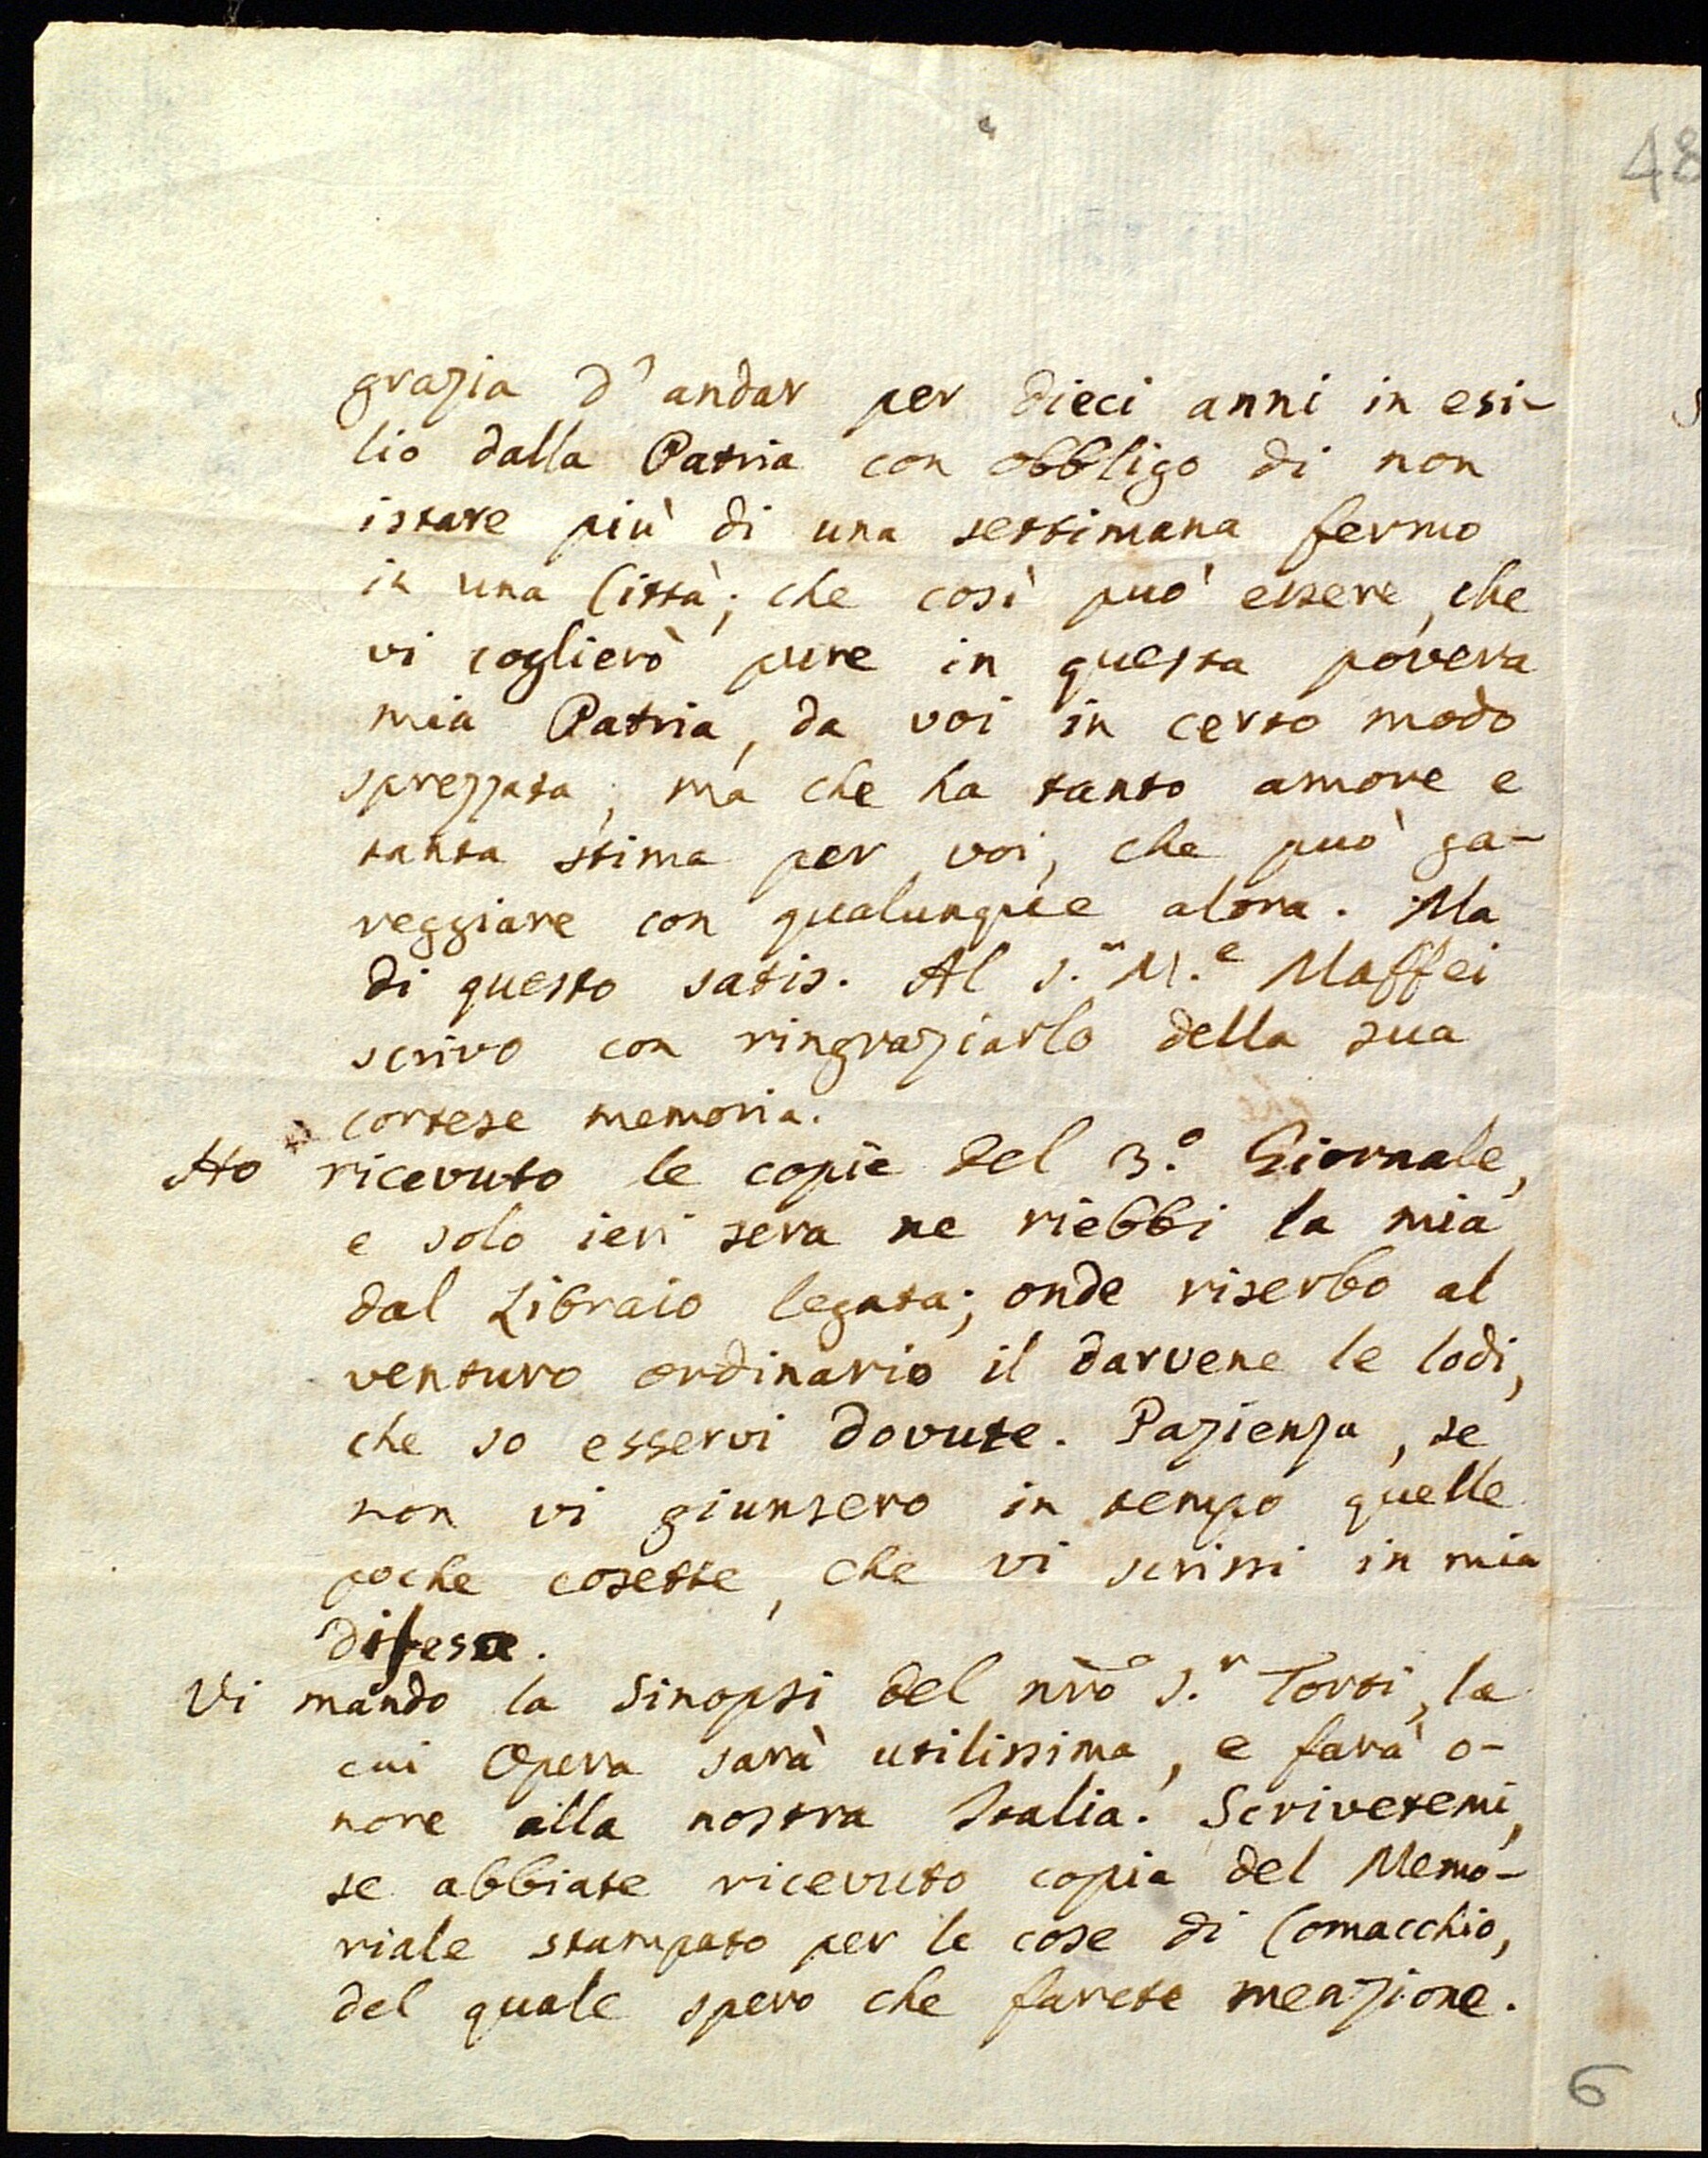 48
grazia d'andar per dieci anni in esi-
lio dalla Patria con obbligo di non
istare più di una settimana fermo
in una Città; che così può essere, che
vi coglierò pure in questa povera
mia Patria, da voi in certo modo
sprezzata; ma che ha tanto amore e
tanta stima per voi, che può ga-
reggiare con qualunque altra. Ma
di questo satis. Al S.r M.e Maffei
scrivo con ringraziarlo della sua
cortese memoria.
Ho ricevuto le copie del 3.o Giornale,
e solo ieri sera ne riebbi la mia
dal Libraio legata; onde riserbo al
venturo ordinario il darvene le lodi,
che so esservi dovute. Pazienza, se
non vi giunsero in tempo quelle
poche cosette, che vi scrissi in mia
difesa.
Vi mando la Sinopsi del nr̃o S.r Torti, la
cui Opera sarà utilissima, e farà o-
nore alla nostra Italia. Scrivetemi,
se abbiate ricevuto copia del Memo-
riale stampato per le cose di Comacchio,
del quale spero che farete menzione.
6